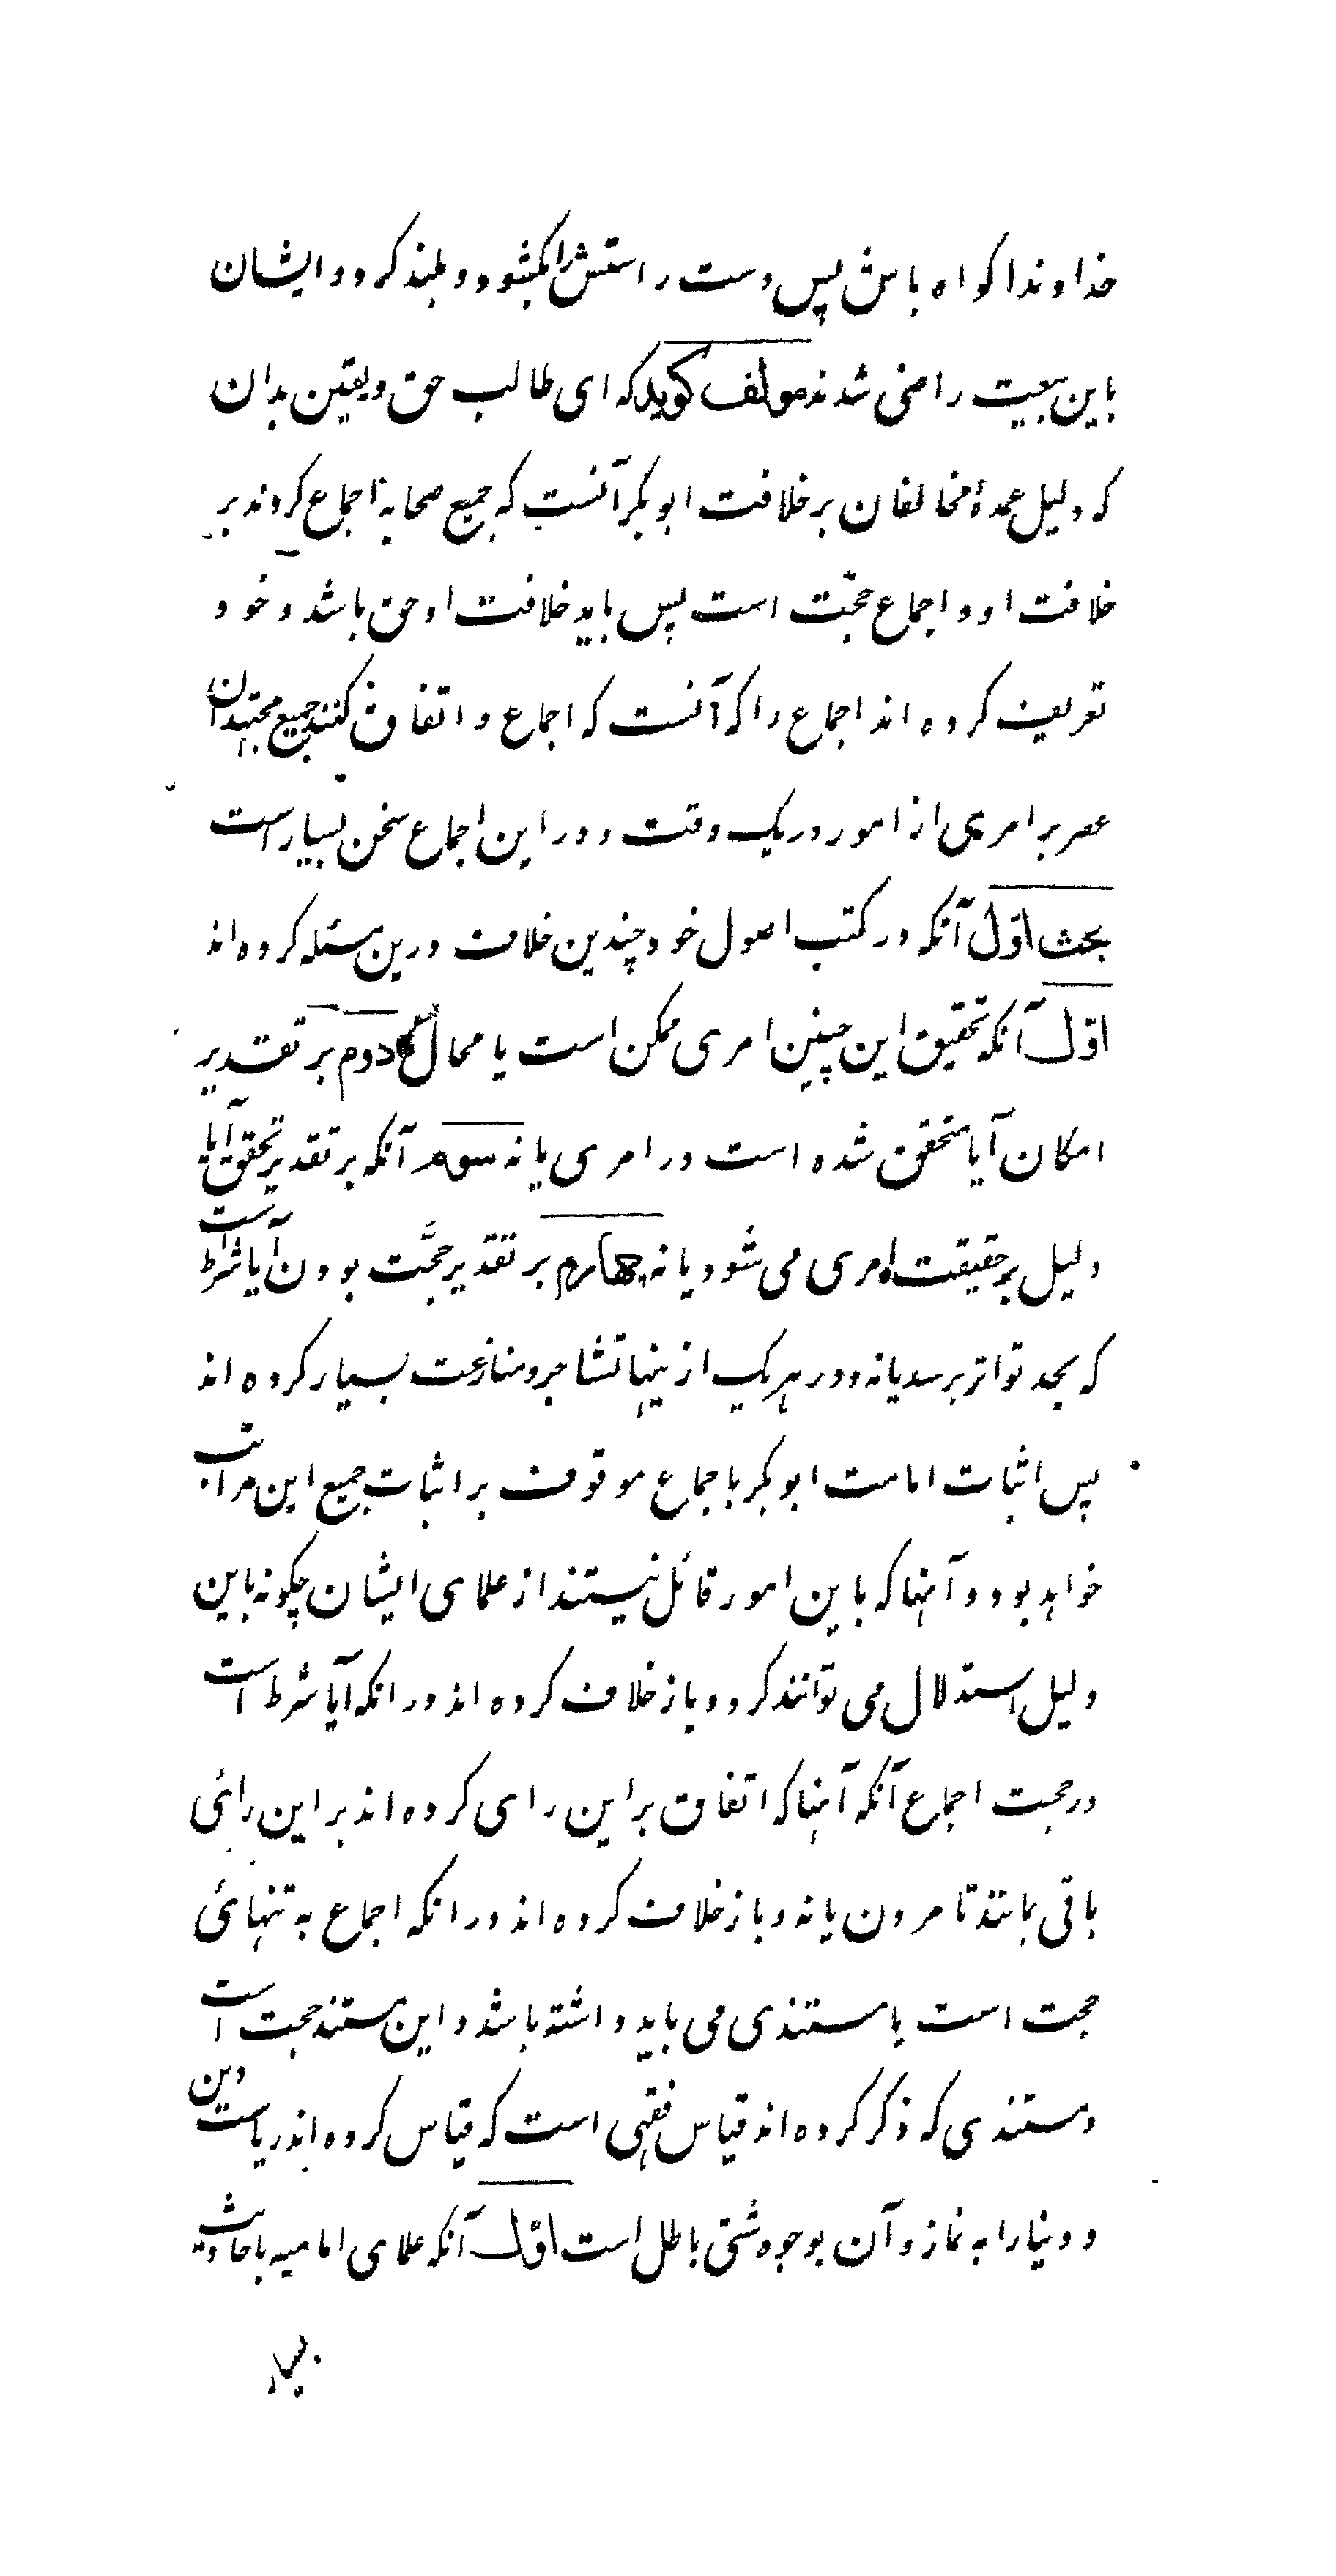 خداوندا کواه باش پس دست راستش را بکشود و بلند کرد و ایشان
باین بیعت راضی شدند مولف کوید که ای طالب حق و یقین بدان
که دلیل عمدهٔ مخالفان بر خلافت ابوبکر آنست که جمیع صحابه اجماع کردند بر
خلافت او و اجماع حجّت است پس باید خلافت او حق باشد و خود
تعریف کرده اند اجماع را که آنست که اجماع و اتفاق کنند جمیع مجتهدان
عصر بر امری از امور در یک وقت و در این اجماع سخن بسیار است
بحث اوّل آنکه در کتب اصول خود چندین خلاف درین مسئله کرده اند
اوّل آنکه تحقیق این چنین امری ممکن است یا محال دوم بر تقدیر
امکان آیا متحقق شده است در امری یا نه سوم آنکه بر تقدیر تحقق آیا
دلیل بر حقیقت امری می شود یا نه چهارم بر تقدیر حجّت بودن آیا شرط است
که بحد تواتر برسد یا نه و در هر یک از ینها تشاجر و منازعت بسیار کرده اند
پس اثبات امامت ابوبکر باجماع موقوف بر اثبات جمیع این مراتب
خواهد بود و آنها که باین امور قائل نیستند از علمای ایشان چکونه باین
دلیل استدلال می توانند کرد و باز خلاف کرده اند در انکه آیا شرط است
در حجت اجماع آنکه آنها که اتفاق بر این رای کرده اند بر این رائی
باقی بمانند تا مردن یا نه و باز خلاف کرده اند در انکه اجماع به تنهائی
حجت است یا مستندی می باید داشته باشد و این مستند حجت است
و مستندی که ذکر کرده اند قیاس فقهی است که قیاس کرده اند ریاست دین
و دنیا را به نماز و آن بوجوه شتی باطل است اوّل آنکه علمای امامیه باحادیث